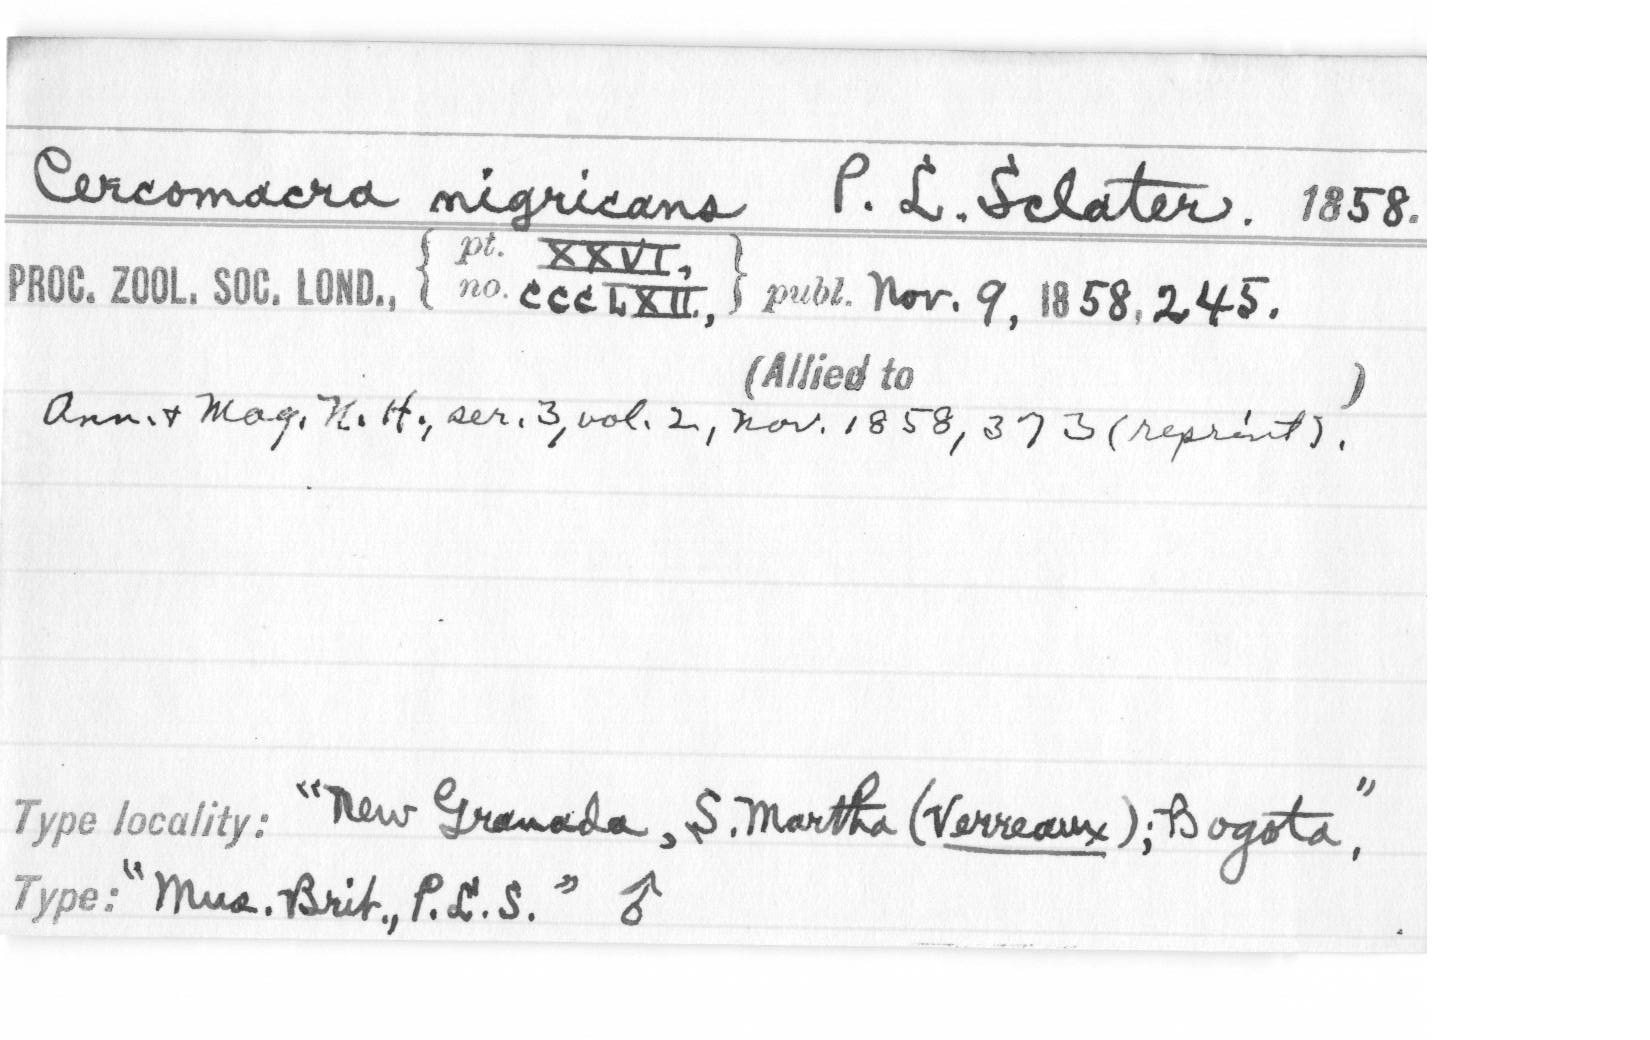 Cercomacra nigricans P. L. Sclater. 1858.
PROC. ZOOL. SOC. LOND., { pt. XXVI, no. CCCLXII., } publ. Nov. 9, 1858, 245.
(Allied to )
Ann. + Mag. N. H., ser. 3, vol. 2, Nov. 1858, 373 (reprint).
Type locality: "New Granada, S. Martha (Verreaux); Bogota,"
Type: "Mus. Brit., P.L.S." ♂